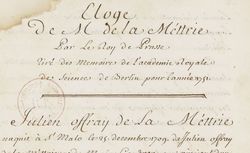 Eloge
De Mr. de la Méttrie
Par Le Roy de Prusse
Tiré des Memoires de l'academie Royale
des Sciences de Berlin pour l'année 1751.
Julien offray de La Méttrie
naquit à St. Malo le 25. decembre 1709. de Julien offray